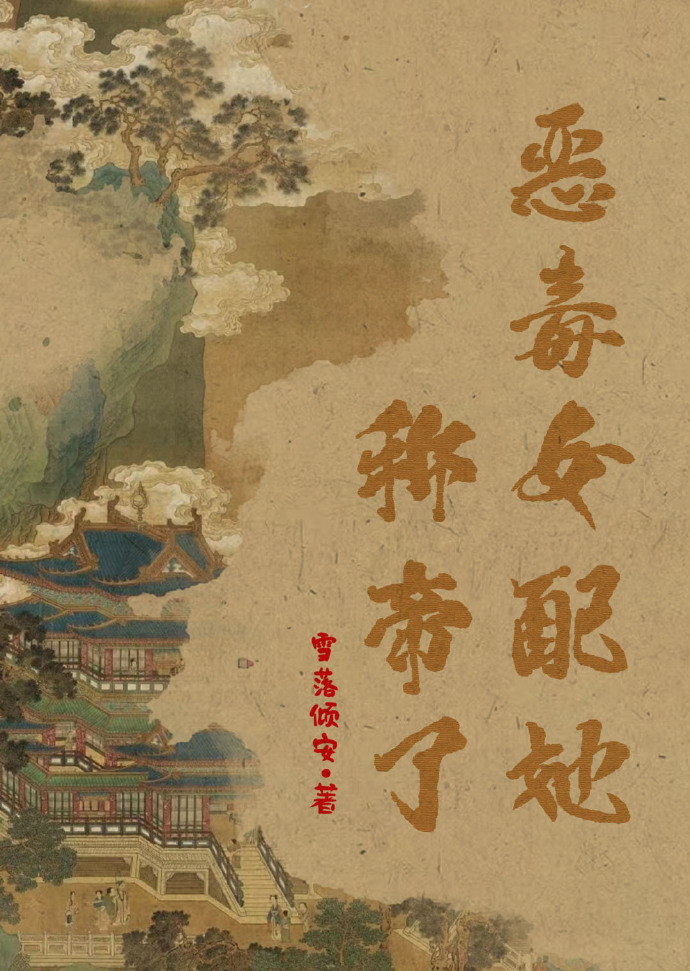 恶毒女配她
称帝了
雪落倾安·著